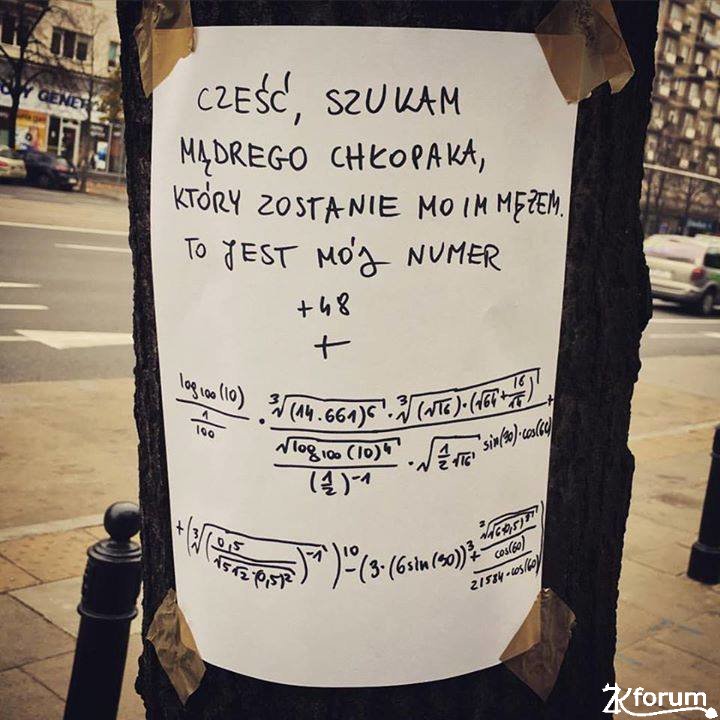 CZEŚĆ, SZUKAM
MĄDREGO CHŁOPAKA,
KTÓRY ZOSTANIE MOIM MĘŻEM.
TO JEST MÓJ NUMER
+48
+
log100(10) / (1/100) · ∛(14.661)⁶ · ∛((√16)·(√64+16/14)) +
√log100(10)⁴ / (1/2)⁻¹ · √(1/2 √16) sin(90)·cos(60)
+(∛(0,5 / √5√2·(0,5)²)⁻¹)¹⁰ -(3·(6sin(90))³ +
cos(60)
21584·cos(60)
GENER
ŻKforum